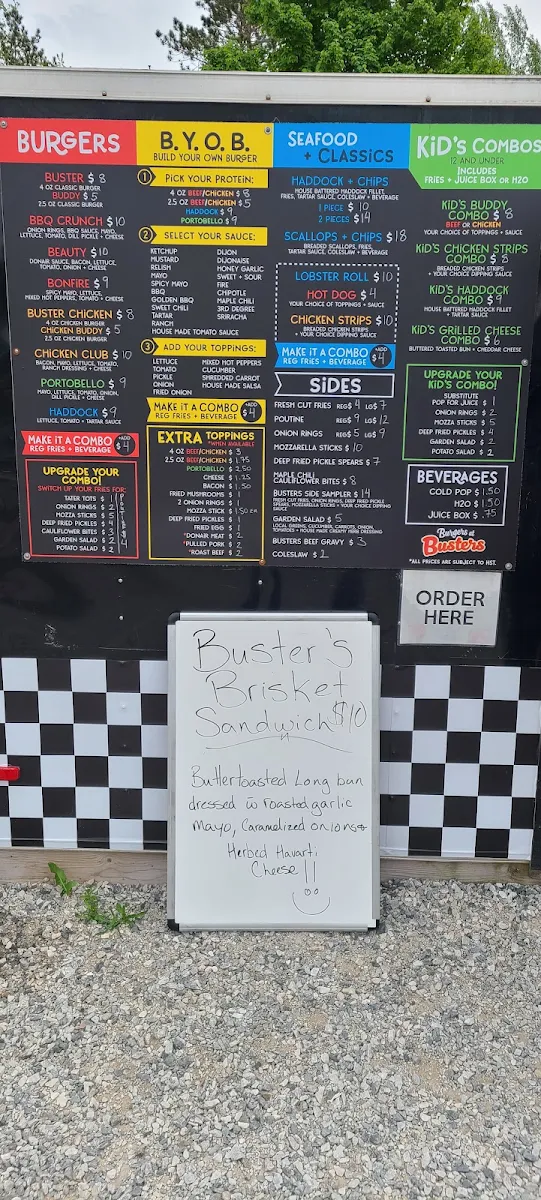 BURGERS
BUSTER $ 8
4 OZ CLASSIC BURGER
BUDDY $ 5
2.5 OZ CLASSIC BURGER
BBQ CRUNCH $ 10
ONION RINGS, BBQ SAUCE, MAYO,
LETTUCE, TOMATO, DILL PICKLE + CHEESE
BEAUTY $ 10
DONAIR SAUCE, BACON, LETTUCE,
TOMATO, ONION + CHEESE
BONFIRE $ 9
SPICY MAYO, LETTUCE,
MIXED HOT PEPPERS, TOMATO + CHEESE
BUSTER CHICKEN $ 8
4 OZ CHICKEN BURGER
CHICKEN BUDDY $ 5
2.5 OZ CHICKEN BURGER
CHICKEN CLUB $ 10
BACON, MAYO, LETTUCE, TOMATO,
RANCH DRESSING + CHEESE
PORTOBELLO $ 9
MAYO, LETTUCE, TOMATO, ONION,
DILL PICKLE + CHEESE
HADDOCK $ 9
LETTUCE, TOMATO + TARTAR SAUCE
MAKE IT A COMBO +ADD
REG FRIES + BEVERAGE $ 4
UPGRADE YOUR
COMBO!
SWITCH UP YOUR FRIES FOR:
TATER TOTS
ONION RINGS $ 2
MOZZA STICKS $ 5
DEEP FRIED PICKLES $ 4
CAULIFLOWER BITES $
GARDEN SALAD $ 2
POTATO SALAD $ 2
B.Y.O.B.
BUILD YOUR OWN BURGER
1 PICK YOUR PROTEIN:
4 OZ BEEF/CHICKEN $ 8
2.5 OZ BEEF/CHICKEN $ 5
HADDOCK $ 9
PORTOBELLO $ 9
2 SELECT YOUR SAUCE:
KETCHUP
MUSTARD
RELISH
MAYO
SPICY MAYO
BBQ
GOLDEN BBQ
SWEET CHILI
TARTAR
RANCH
HOUSE MADE TOMATO SAUCE
DIJON
DIJONAISE
HONEY GARLIC
SWEET + SOUR
FIRE
CHIPOTLE
MAPLE CHILI
3RD DEGREE
SRIRACHA
3 ADD YOUR TOPPINGS:
LETTUCE
TOMATO
PICKLE
ONION
FRIED ONION
MIXED HOT PEPPERS
CUCUMBER
SHREDDED CARROT
HOUSE MADE SALSA
MAKE IT A COMBO +ADD
REG FRIES + BEVERAGE $ 4
EXTRA TOPPINGS
*WHEN AVAILABLE
4 OZ BEEF/CHICKEN $ 3
2.5 OZ BEEF/CHICKEN $ 1.75
PORTOBELLO $ 2.50
CHEESE $ 1.25
BACON $ 1.50
FRIED MUSHROOMS $ 1
2 ONION RINGS $ 1
MOZZA STICK $ 1.50 ea
DEEP FRIED PICKLES $ 1
FRIED EGG $ 1
*DONAIR MEAT $ 2
*PULLED PORK $ 2
*ROAST BEEF $ 2
SEAFOOD
+ CLASSICS
HADDOCK + CHIPS
HOUSE BATTERED HADDOCK FILLET,
FRIES, TARTAR SAUCE, COLESLAW + BEVERAGE
1 PIECE $ 10
2 PIECES $ 14
SCALLOPS + CHIPS $ 18
BREADED SCALLOPS, FRIES,
TARTAR SAUCE, COLESLAW + BEVERAGE
LOBSTER ROLL $ 10
HOT DOG $ 4
YOUR CHOICE OF TOPPINGS + SAUCE
CHICKEN STRIPS $ 10
BREADED CHICKEN STRIPS
+ YOUR CHOICE DIPPING SAUCE
MAKE IT A COMBO +ADD
REG FRIES + BEVERAGE $ 4
SIDES
FRESH CUT FRIES REG$ 4 LG$ 7
POUTINE REG$ 9 LG$ 12
ONION RINGS REG$ 5 LG$ 9
MOZZARELLA STICKS $ 10
DEEP FRIED PICKLE SPEARS $ 7
MAPLE CHILI
CAULIFLOWER BITES $ 8
BUSTERS SIDE SAMPLER $ 14
FRESH CUT FRIES, ONION RINGS, DEEP FRIED PICKLE
SPEARS, MOZZARELLA STICKS + YOUR CHOICE DIPPING
SAUCE
GARDEN SALAD $ 5
LOCAL GREENS, CUCUMBER, CARROTS, ONION,
TOMATOES + HOUSE MADE CREAMY HERB DRESSING
BUSTERS BEEF GRAVY $ 3
COLESLAW $ 2
KiD'S COMBOS
12 AND UNDER
INCLUDES
FRIES + JUICE BOX or H2O
KID'S BUDDY
COMBO $ 8
BEEF or CHICKEN
YOUR CHOICE OF TOPPINGS + SAUCE
KID'S CHICKEN STRIPS
COMBO $ 8
BREADED CHICKEN STRIPS
+ YOUR CHOICE DIPPING SAUCE
KID'S HADDOCK
COMBO $ 9
HOUSE BATTERED HADDOCK FILLET
+ TARTAR SAUCE
KID'S GRILLED CHEESE
COMBO $ 6
BUTTERED TOASTED BUN + CHEDDAR CHEESE
UPGRADE YOUR
KID'S COMBO!
SUBSTITUTE
POP FOR JUICE $ 1
ONION RINGS $ 2
MOZZA STICKS $ 5
DEEP FRIED PICKLES $ 4
GARDEN SALAD $ 2
POTATO SALAD $ 2
BEVERAGES
COLD POP $ 1.50
H2O $ 1.50
JUICE BOX $ .75
Burgers at
Busters
*ALL PRICES ARE SUBJECT TO HST.
ORDER
HERE
Buster's
Brisket
Sandwich $10
Buttertoasted Long bun
dressed w roasted garlic
Mayo, Caramelized onions +
Herbed Havarti
Cheese !!